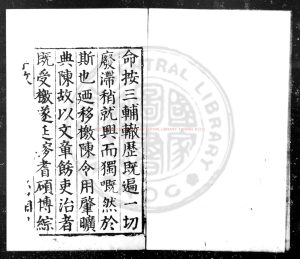 命按三輔轍歷既遍一切
廢滯稍就興而獨嘅然於
斯也迺移檄陳令用肇曠
典陳故以文章飭吏治者
既受檄遂
耆碩博綜
CENTRAL LIBRARY